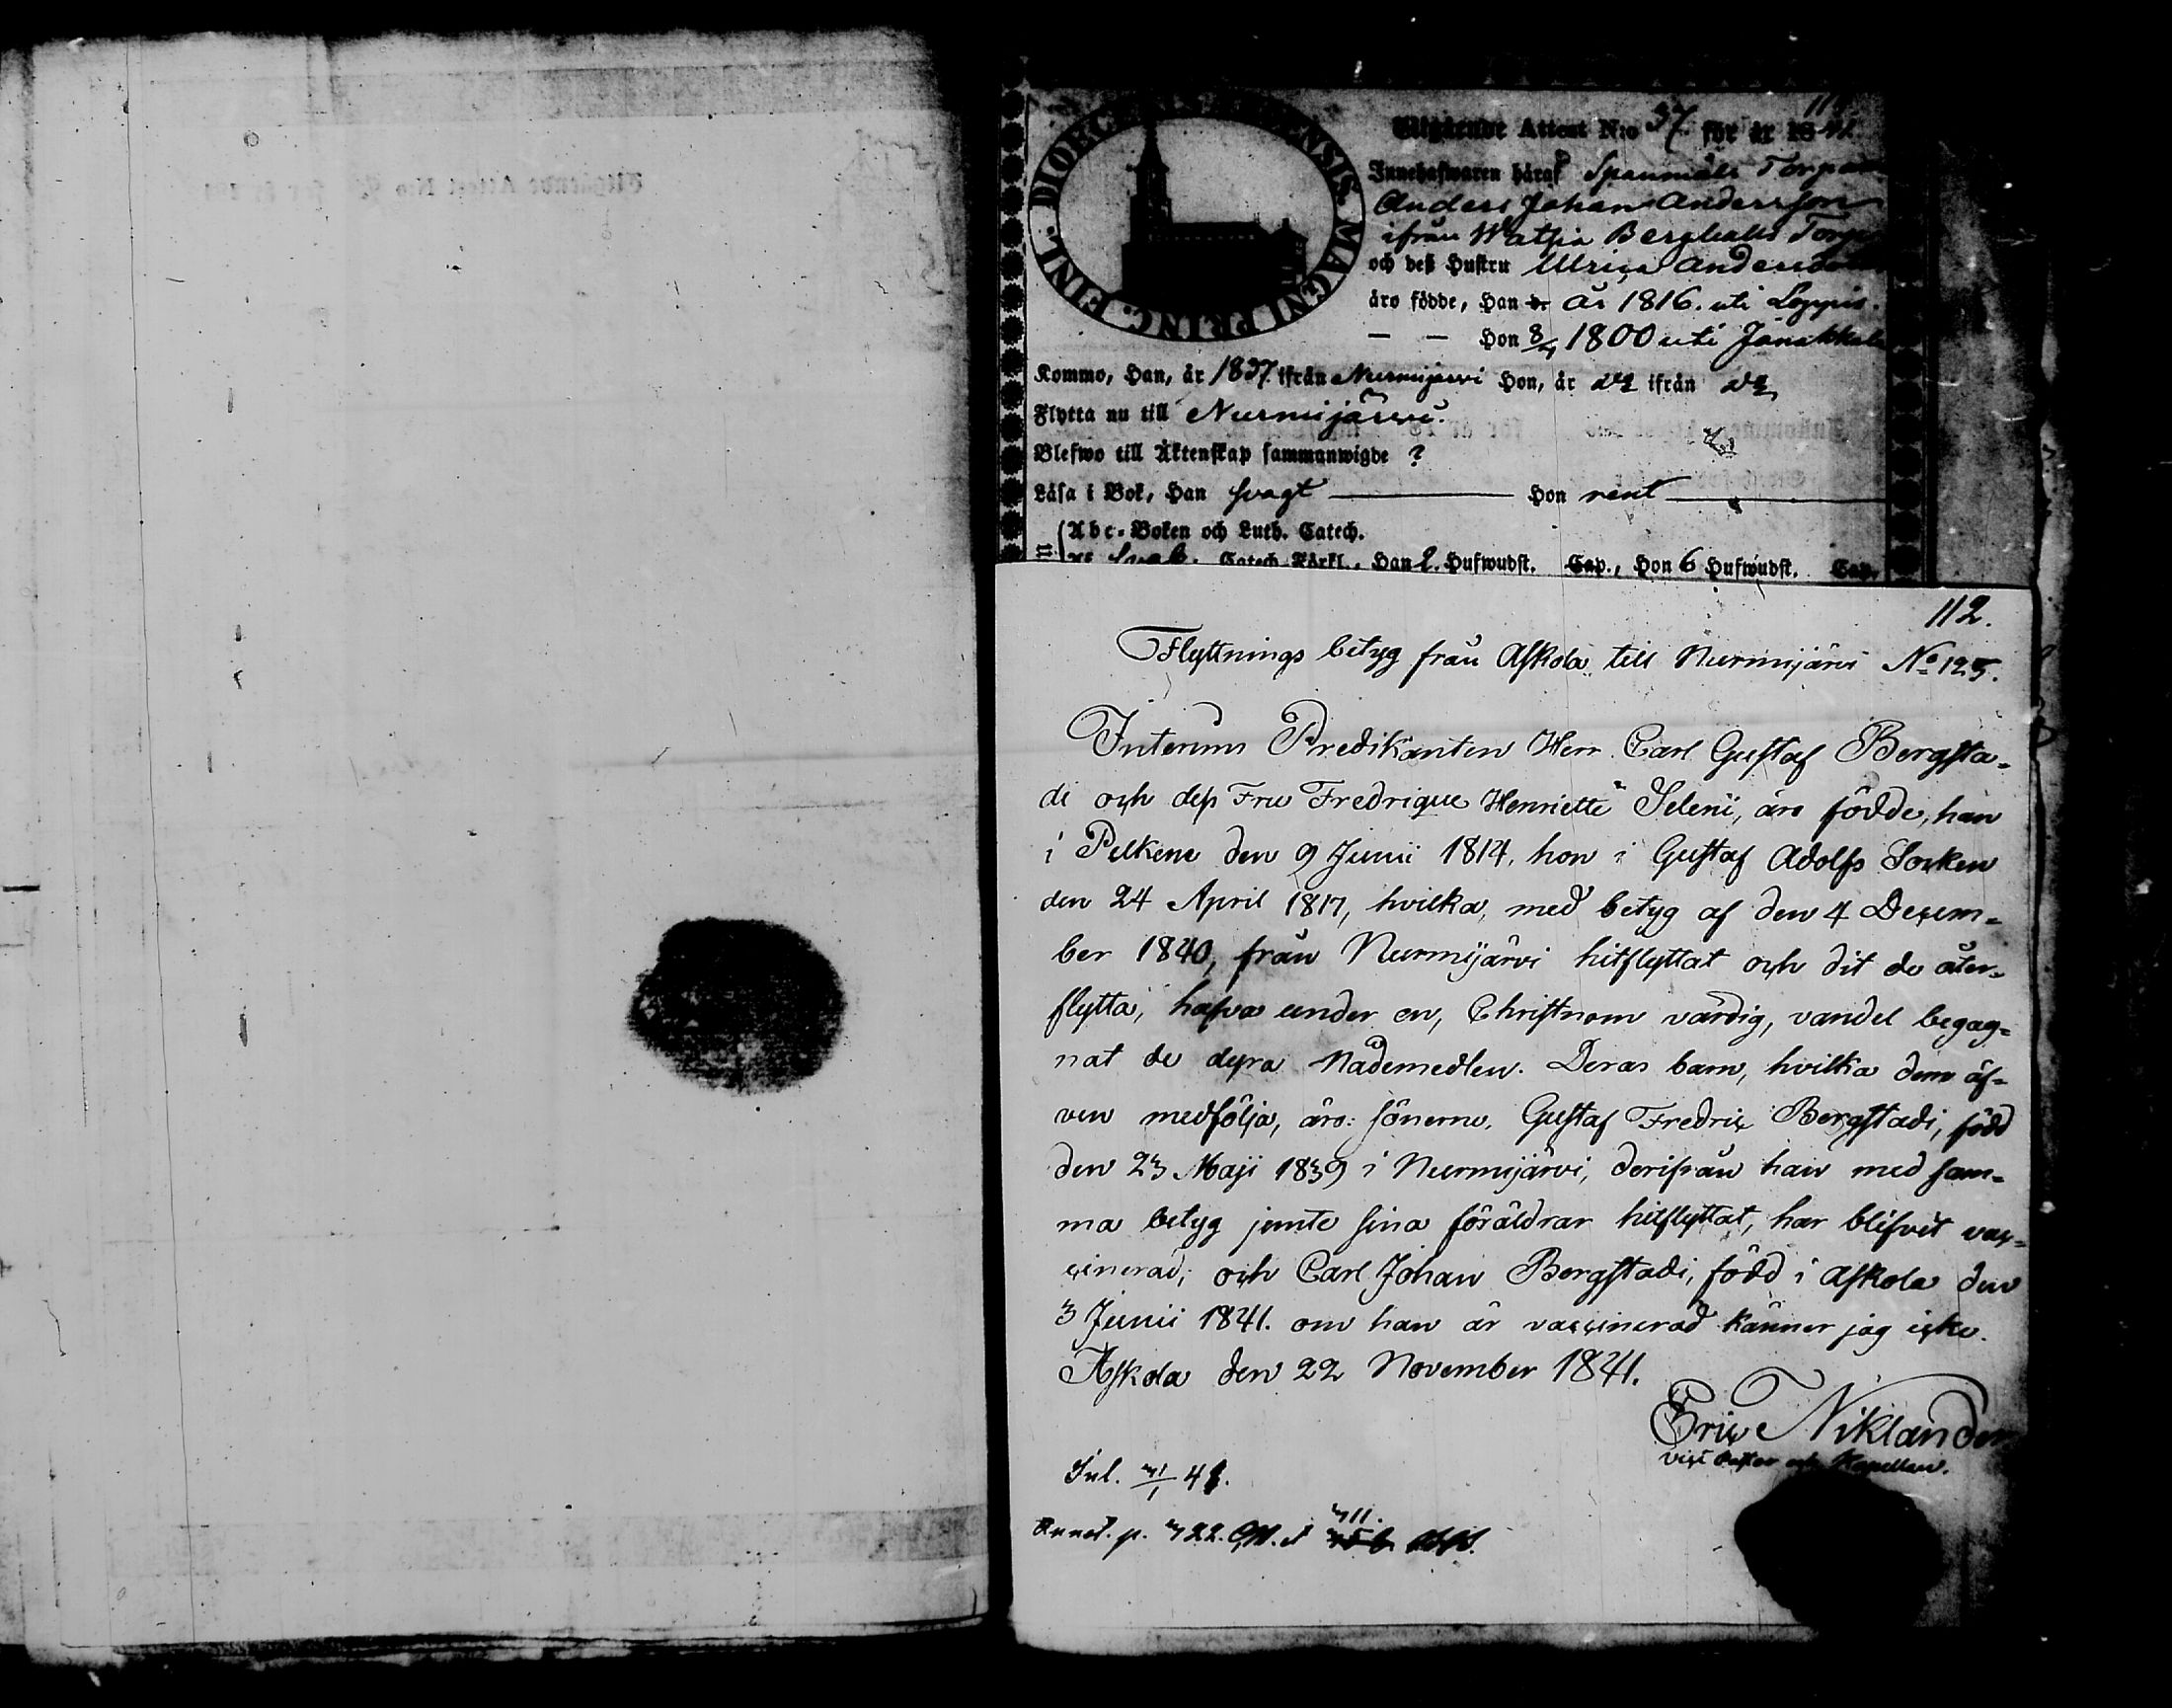 DIOECES. ABOENSIS. MAGNI PRINC. FINL.
111
Utgående Attest N:o 37 för år 1841.
Innehafwaren häraf Spanmåls Torpar
Anders Johan Andersson
ifrån Watsia Bergkulls Torp
och deß Hustru Ulrica Andersdotter
äro födde, Han d. År 1816. uti Loppis.
— — Hon 8/4 1800 uti Janakkala
Kommo, Han, år 1837. ifrån Nurmijärvi Hon, år do ifrån do
Flytta nu till Nurmijärvi.
Blefwo till Äktenskap sammanwigde ?
Läsa i Bok, Han svagt Hon rent
Abc-Boken och Luth. Catech.
Catech. Förkl., Han 2. Hufwudst. Cap., Hon 6 Hufwudst. Cap.
112.
Flyttnings betyg från Askola till Nurmijärvi No 125.
Interims Predikanten Herr Carl Gustaf Bergsta-
di och deß Fru Fredrique Henriette Selenii, äro födde, han
i Pelkene den 9 Junii 1814, hon i Gustaf Adolfs Socken
den 24 April 1817, hvilka, med betyg af den 4 Decem-
ber 1840, från Nurmijärvi hitflyttat och dit de åter-
flytta, hafva under en, Christnom värdig, vandel begag-
nat de dyra Nådemedlen. Deras barn, hvilka dem äf-
ven medfölja, äro: sönerne, Gustaf Fredric Bergstadi, född
den 23 Maji 1839 i Nurmijärvi, derifrån han med sam-
ma betyg jemte sina föräldrar hitflyttat, har blifvit vac-
cinerad; och Carl Johan Bergstadi, född i Askola den
3 Junii 1841. om han är vaccinerad känner jag icke.
Askola den 22 November 1841.
Eric Niklander
vice Pastor och Kapellan.
Inl. 31/1 42.
Annot. p. 322.
311.